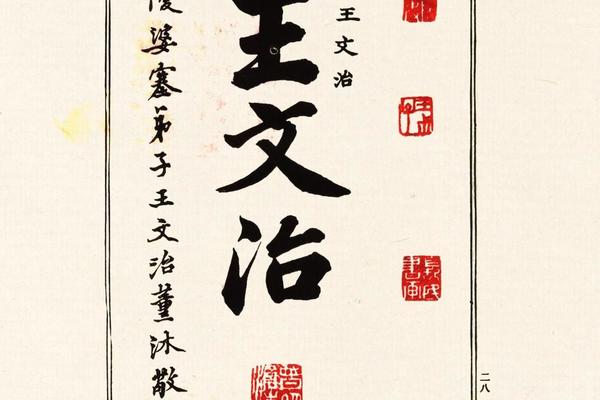 二八
王文治
王文治
婆塞弟子王文治薰沐敬